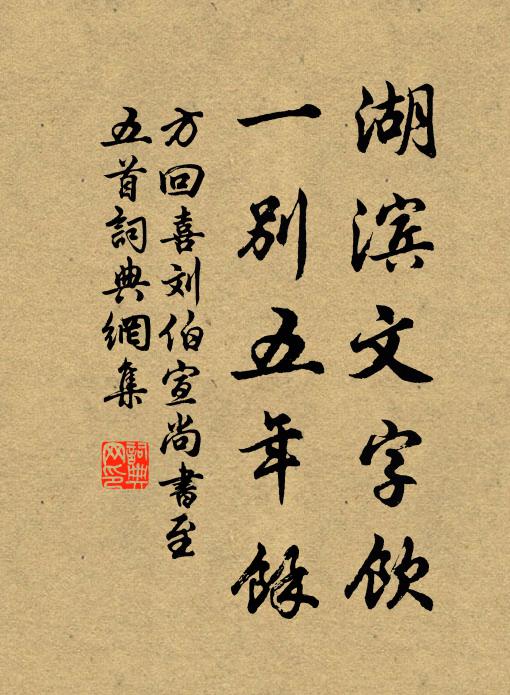 湖滨文字饮
一别五年餘
方回喜刘伯宣尚書至
五首詞典網集
詞典网印